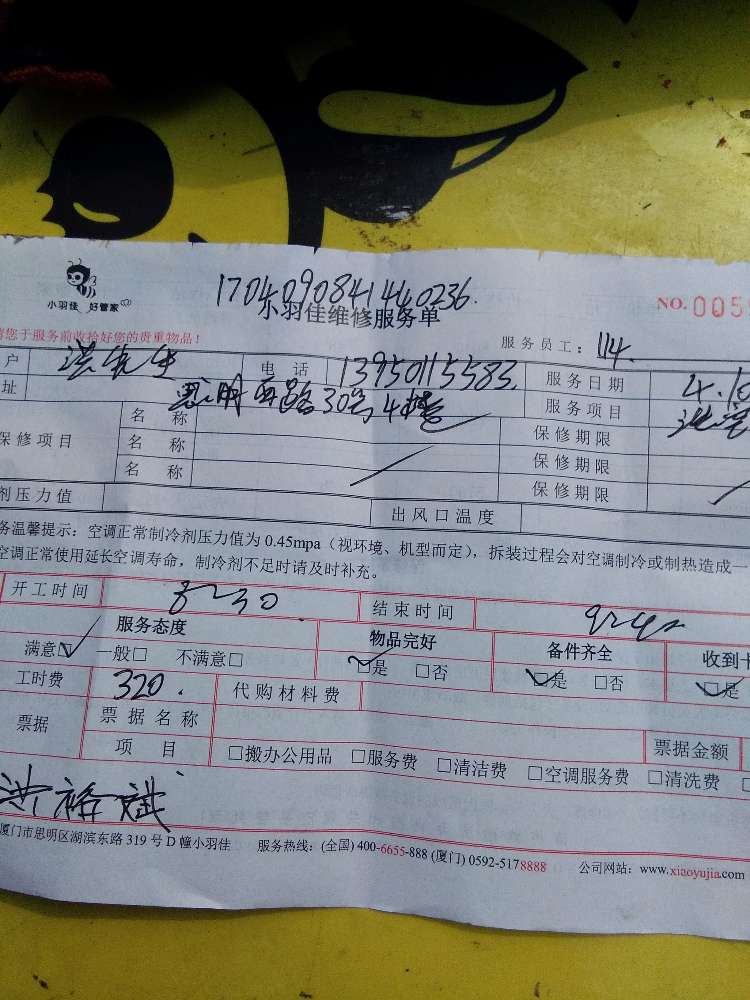 1704090841440236.
小羽佳 好管家
小羽佳维修服务单
NO.005
请您于服务前收拾好您的贵重物品！
服务员工：114.
户 洪先生 电话 13950115583. 服务日期 4.10
址 思明西路30号4楼 服务项目
保修项目 名称 保修期限
名称 保修期限
名称 保修期限
剂压力值 出风口温度
务温馨提示：空调正常制冷剂压力值为 0.45mpa（视环境、机型而定），拆装过程会对空调制冷或制热造成一
空调正常使用延长空调寿命，制冷剂不足时请及时补充。
开工时间 8~30 结束时间
服务态度 物品完好 备件齐全 收到卡
满意☑ 一般□ 不满意□ ☑是 □否 ☑是 □否 ☑是
工时费 320. 代购材料费
票据 票据名称 票据金额
项目 □搬办公用品 □服务费 □清洁费 □空调服务费 □清洗费
洪裕斌
厦门市思明区湖滨东路 319 号 D 幢小羽佳 服务热线：(全国) 400-6655-888 (厦门) 0592-5178888 公司网站：www.xiaoyujia.com